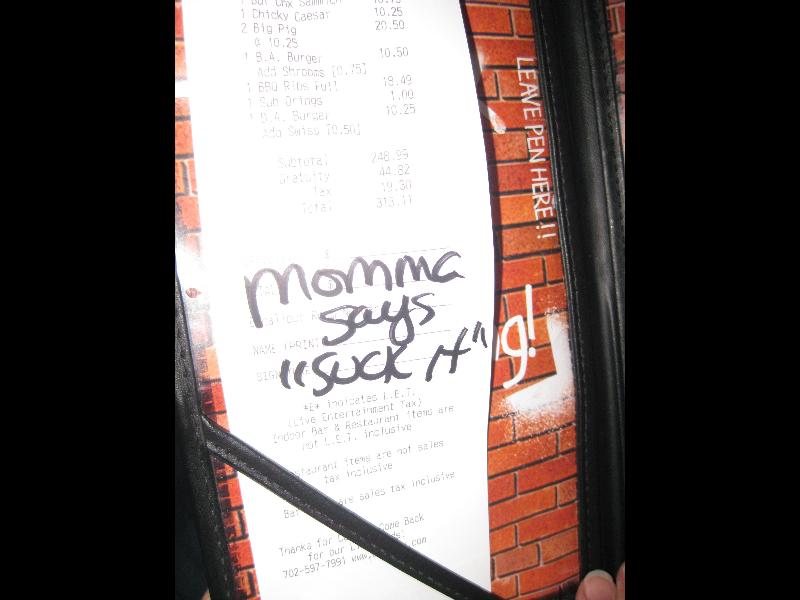 1 Chicky Caesar 10.25
2 Big Pig 20.50
@ 10.25
1 B.A. Burger 10.50
Add Shrooms [0.75]
1 BBQ Ribs Full 18.49
1 Sub Orings 1.00
1 B.A. Burger 10.25
Add Swiss [0.50]
Subtotal 248.99
Gratuity 44.82
Tax 19.30
Total 313.11
$
momma
says
"SUCK it"
NAME (PRINT
SIGN
*E* indicates L.E.T.
(Live Entertainment Tax)
Indoor Bar & Restaurant items are
not L.E.T. inclusive
staurant items are not sales
tax inclusive
Bar are sales tax inclusive
Thanks for Come Back
for our
702-597-7991 www
LEAVE PEN HERE!!
g!